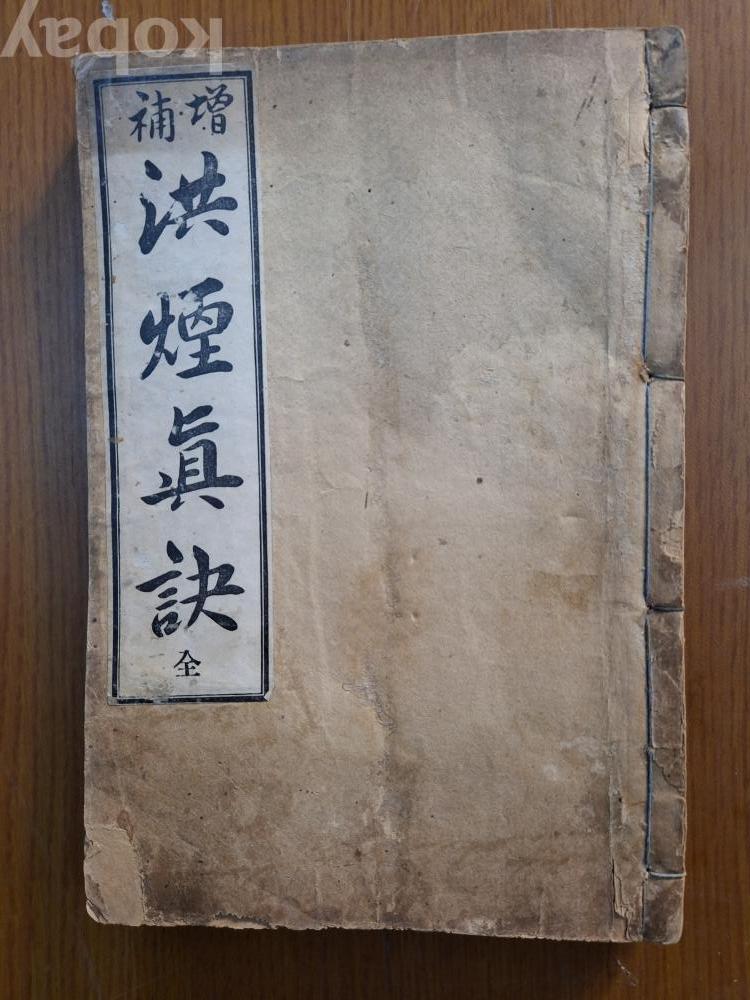 kobay
增補
洪煙眞訣
全